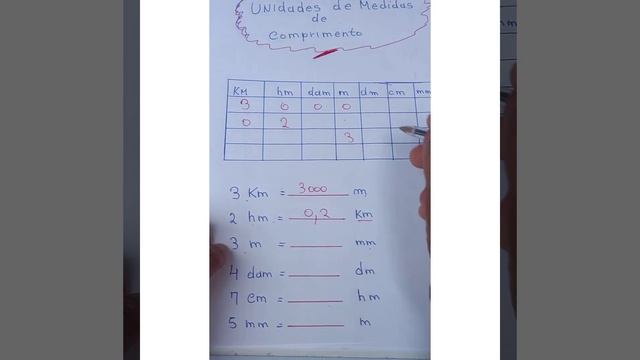 UNIdades de Medidas
de
Comprimento
KM hm dam m dm cm mm
3 0 0 0
0 2
3
3 Km = 3000 m
2 hm = 0,2 Km
3 m = mm
4 dam = dm
7 cm = hm
5 mm = m